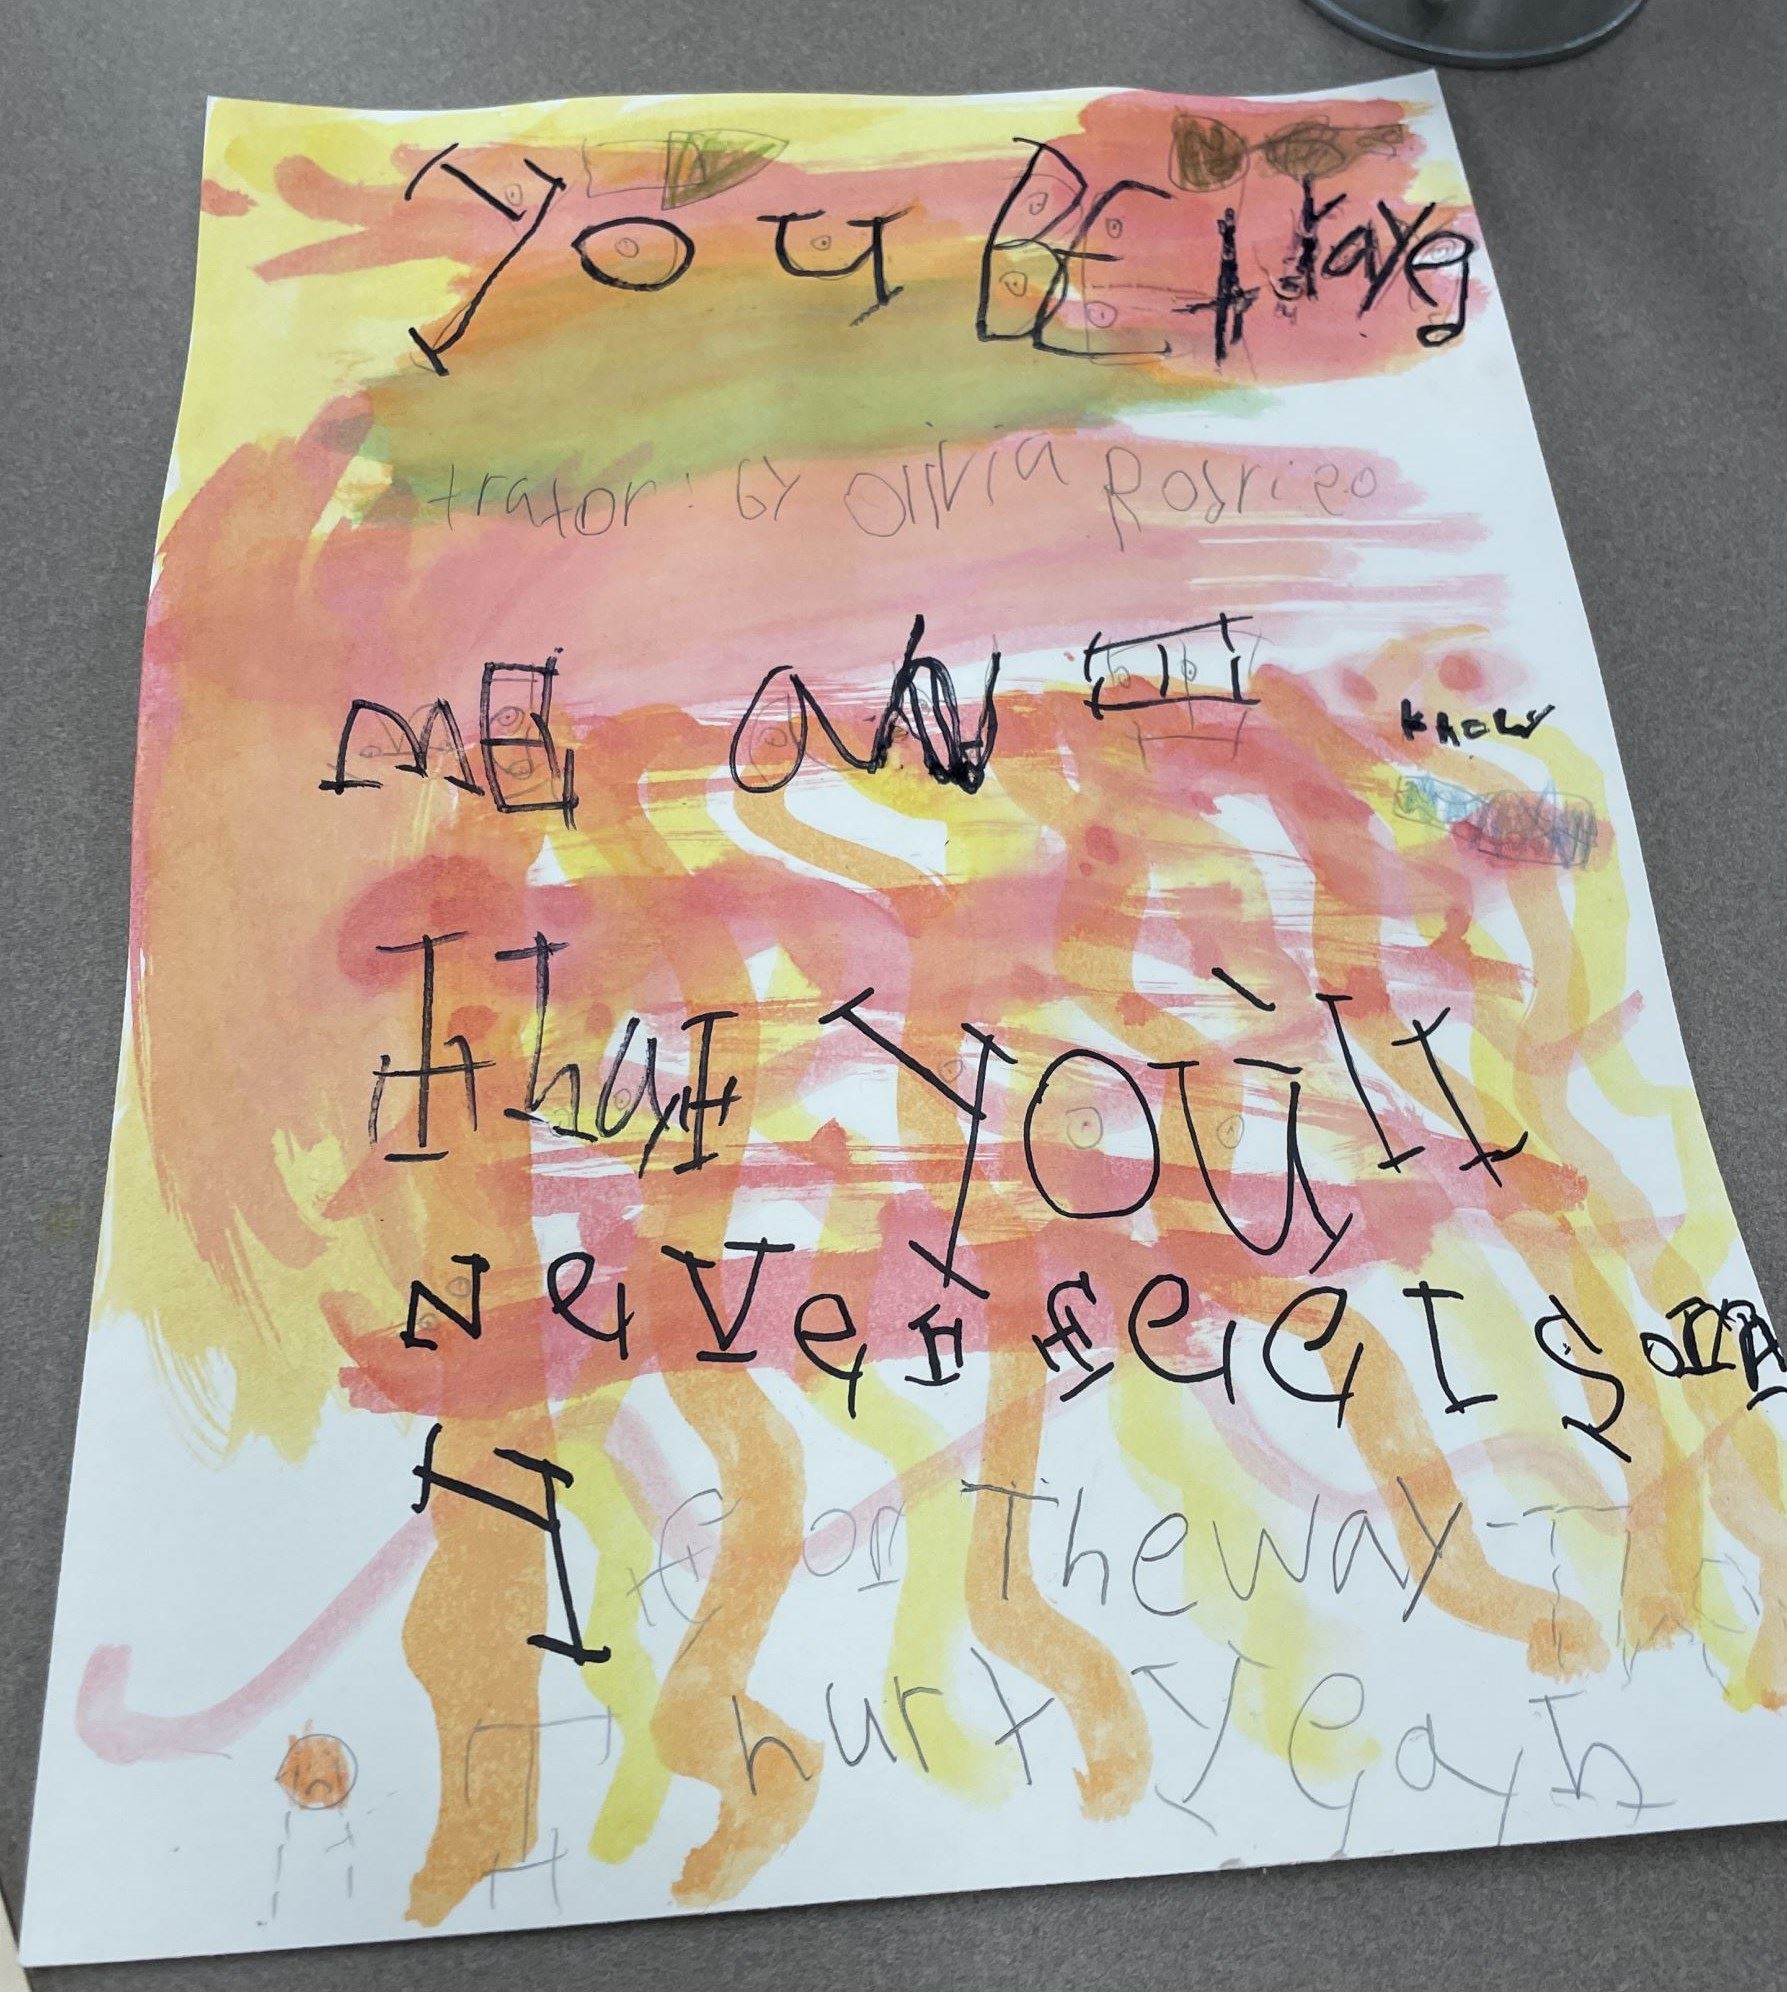 you BEtrayed
trator: By Olivia Rodrigo
ME AN I know
that you'll
Never feel sorr
y for The way I
I hurt yeah